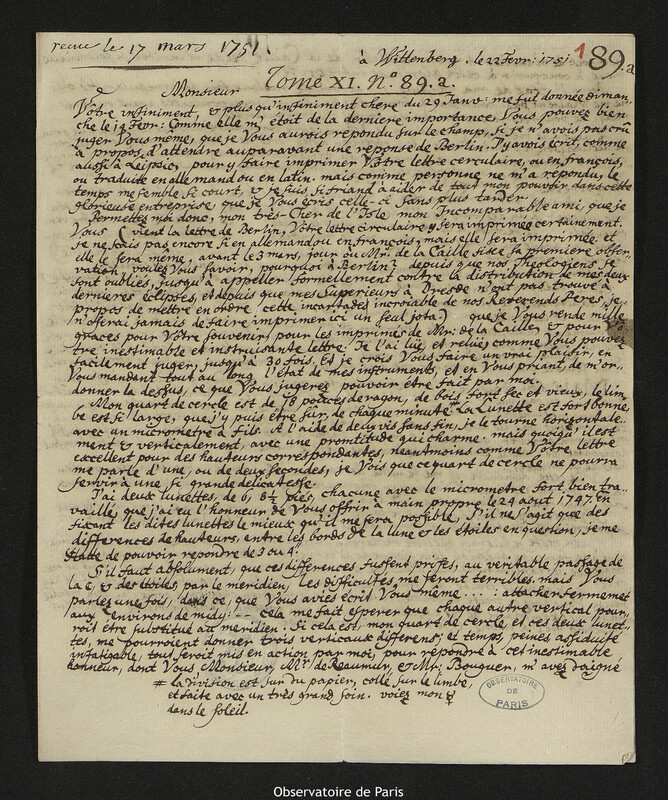 recue le 17 mars 1751.
à Wittenberg. le 22 Fevr: 1751.
189.a
Tome XI. N.o 89.a.
Monsieur
Vôtre infiniment, & plus qu'infiniment chere du 29 Janv: me fut donnée diman,
che le 14 Fevr: Comme elle m'étoit de la derniere importance, Vous pouvez bien
juger Vous même, que je Vous aurois repondu sur le champ, si je n'avois pas crû
à propos, d'attendre auparavant une reponse de Berlin. J'y avois écrit, comme
aussi à Leipsic, pour y faire imprimer Vôtre lettre circulaire, ou en françois,
ou traduite en allemand ou en latin. mais comme personne ne m'a repondu, le
temps me semble si court, & je suis si friand à aider de tout mon pouvoir dans cette
glorieuse entreprise, que je Vous ecris celle-ci sans plus tarder.
Permettés moi donc, mon très-Cher de l'Isle mon Incomparable ami, que je
Vous (vient la lettre de Berlin, Vôtre lettre circulaire y sera imprimée certainement.
je ne scais pas encore si en allemand ou en françois, mais elle sera imprimée et
elle le sera même, avant le 3 mars, jour où Mr. de la Caille fixe sa premiere obser-
vation. voulez Vous savoir, pourquoi à Berlin? depuis que nos Theologiens, se
sont oubliés, jusqu'à appeller formellement contre la distribution de mes deux
dernieres éclipses, et depuis que mes Superieurs à Dresde n'ont pas trouvé à
propos de mettre en ordre, cette incartades incroiable de nos Reverends Peres, je
n'oserai jamais de faire imprimer ici un seul jota) que je Vous rende mille
graces pour Vôtre souvenir, pour les imprimés de Mr: de la Caille, & pour Vô
tre inestimable et instruisante lettre. Je l'ai lüe, et relüe, comme Vous pouvez
facilement juger, jusqu'à 30 fois, et je crois Vous faire un vrai plaisir, en
Vous mandant tout au long l'état de mes instruments, et en Vous priant, de m'or,
donner la dessus, ce que Vous jugerez pouvoir être fait par moi.
Mon quart de cercle est de 18 pouces de raÿon, de bois fort sec et vieux, le lim,
be est si large, que j'y puis être sur, de chaque minute. La Lunette est fort bonne,
avec un micrometre à fils. A l'aide de deux vis sans fin, je le tourne horizontale,
ment & verticalement, avec une promtitude qui charme. mais quoiqu'il est
excellent pour des hauteurs correspondantes, neantmoins comme Vôtre lettre
me parle d'une, ou de deux secondes, je vois que ce quart de cercle ne pourra
servir à une, si grande delicatesse.
J'ai deux lunettes, de 6, 8½ piés, chacune avec le micrometre fort bien tra,
vaillé, que j'ai eu l'honneur de Vous offrir à main propre le 24 aout 1747, en
fixant les dites lunettes le mieux qu'il me sera possible. S'il ne s'agit que des
differences de hauteurs, entre les bords de la lune & les étoiles en question, je me
flatte de pouvoir repondre de 3 ou 4".
S'il faut absolument, que ces differences fussent prises, au veritable passage de
la ☾, & des étoiles, par le meridien, les difficultés, me seront terribles. mais Vous
parlez une fois, dans ce, que Vous aviés écrit Vous même ... : attacher fermement
aux environs de midy: -- cela me fait esperer que chaque autre vertical pour,
roit être substitué au meridien. Si cela est, mon quart de cercle, et ces deux lunet,
tes, me pourroient donner trois verticaux differens; et temps, peines assiduité
infatigable, tout seroit mis en action par moi, pour repondre à cet inestimable
honneur, dont Vous Monsieur, Mr. de Reaumur, & Mr. Bouguer, m'avez daigné
# la division est sur du papier, collé sur le limbe,
et faite avec un très grand soin. voiez mon ☿
dans le soleil.
OBSERVATOIRE
DE
PARIS
Observatoire de Paris